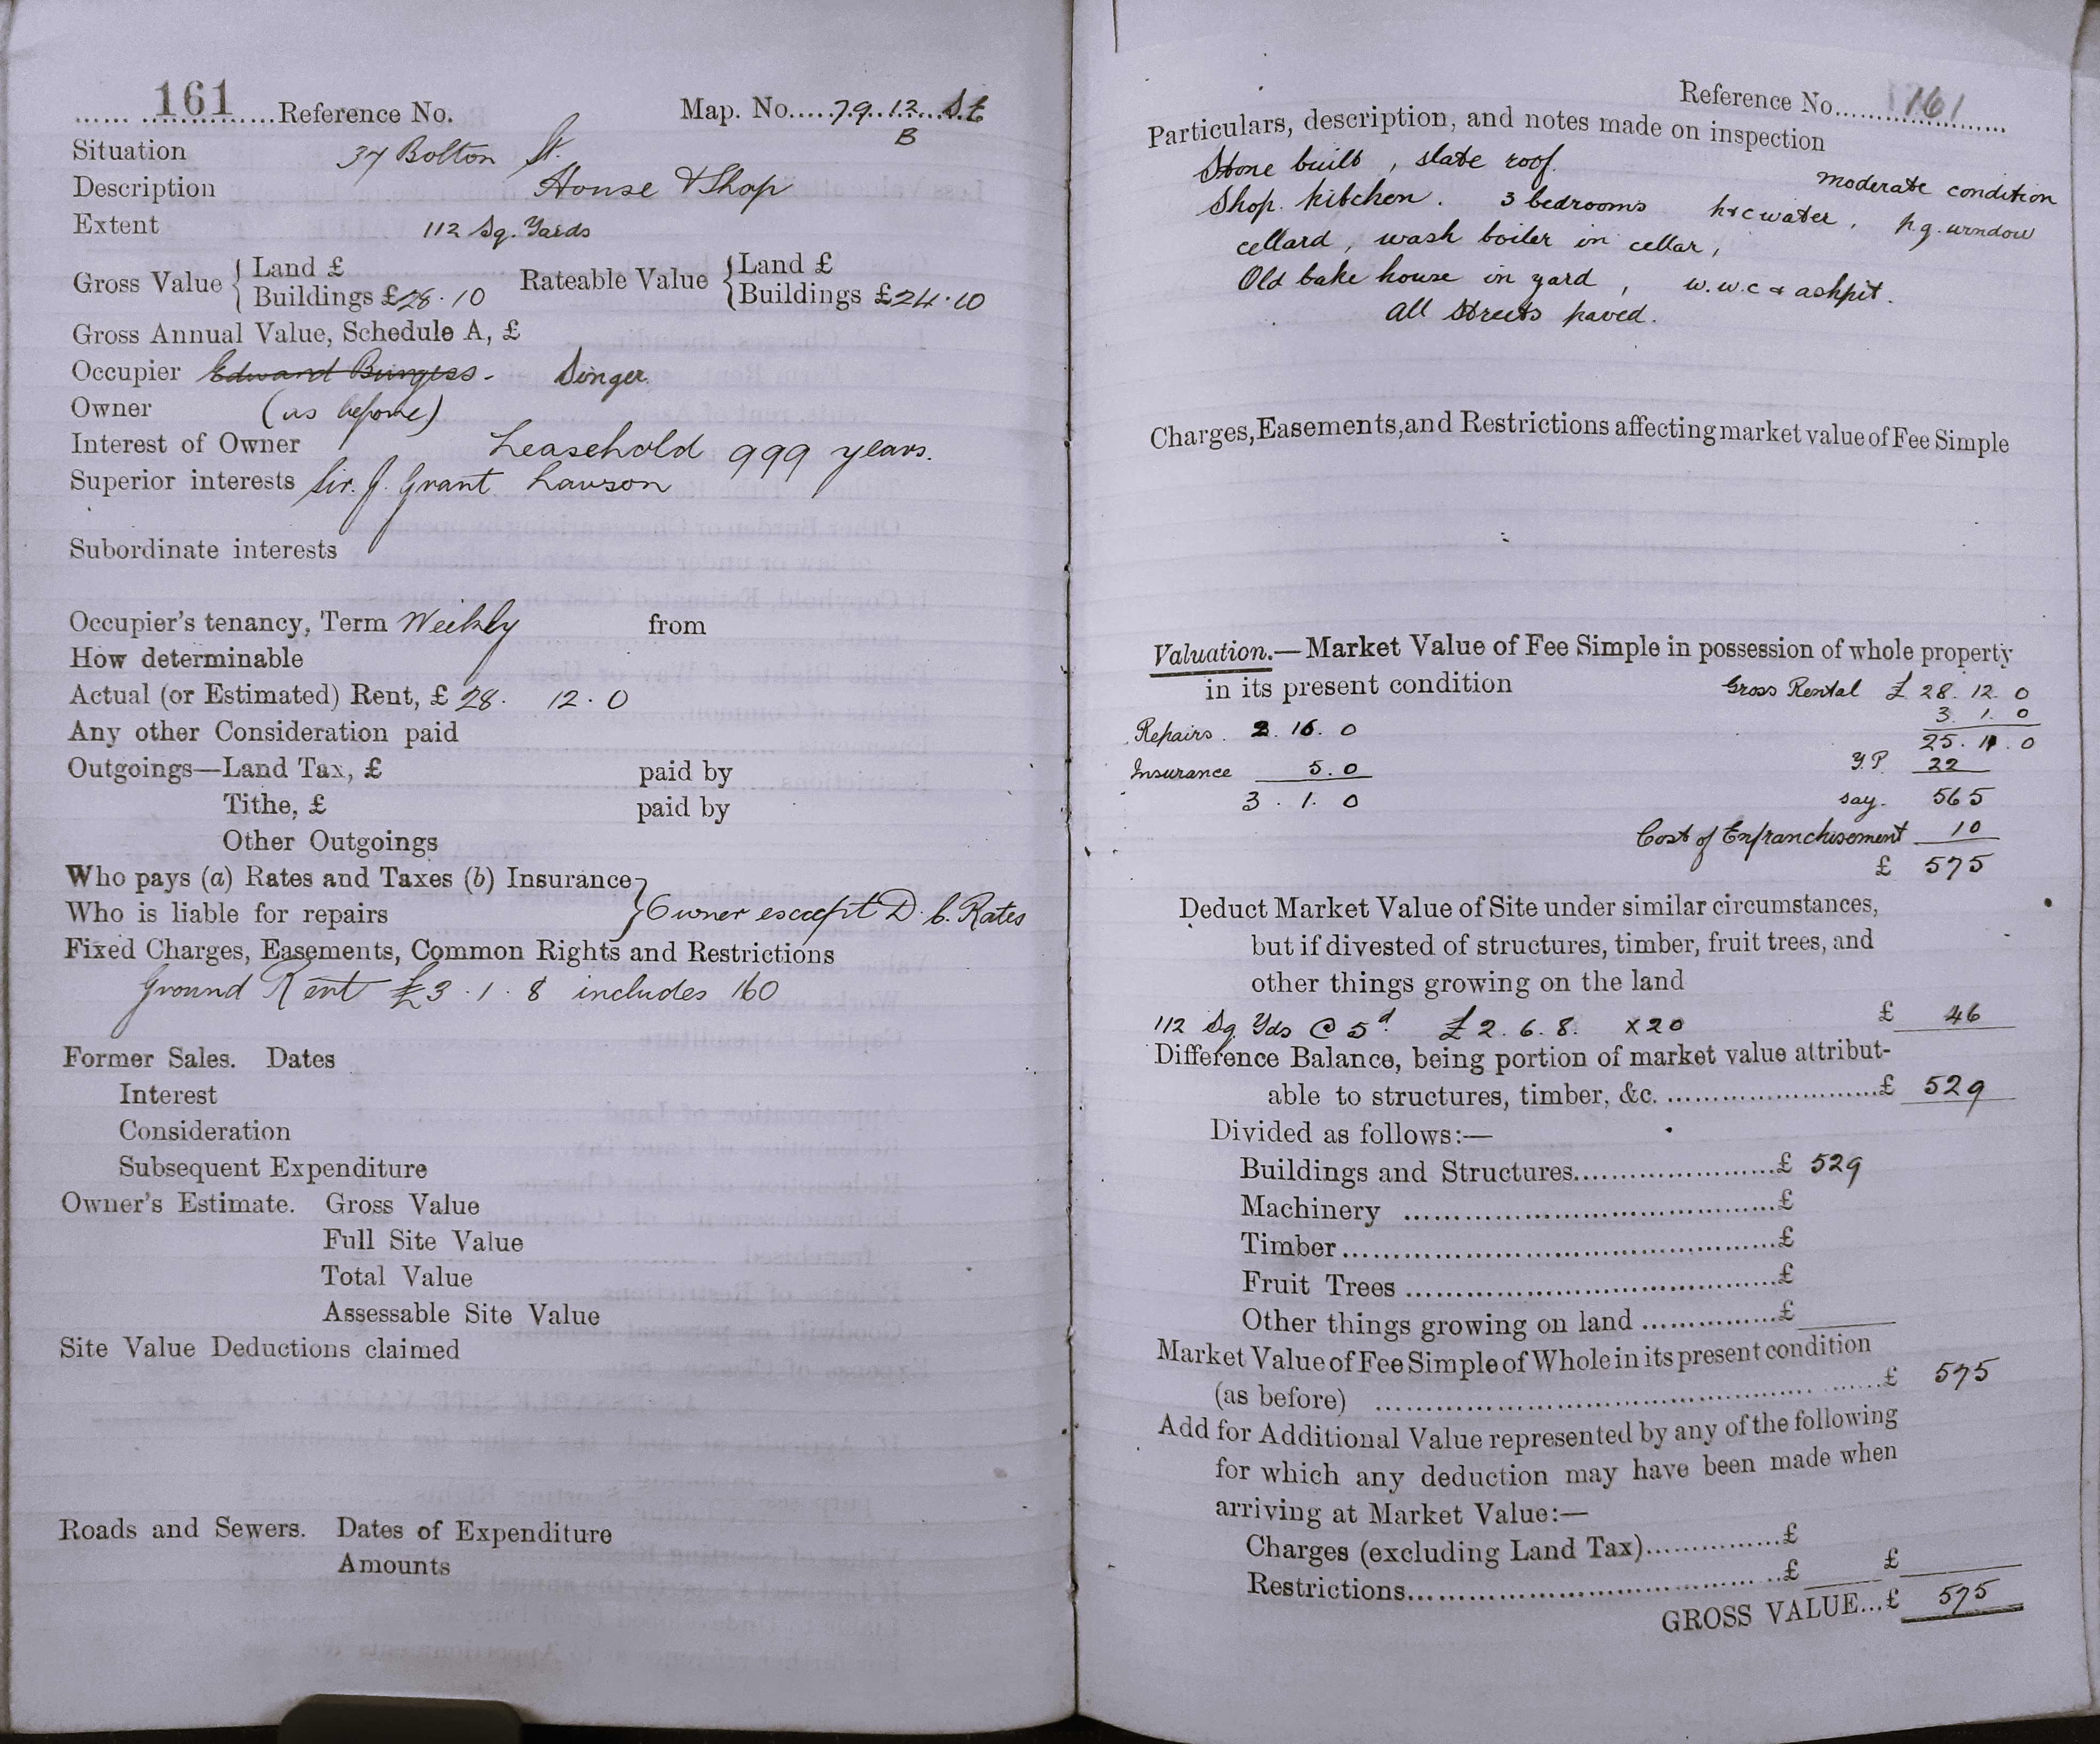 161 Reference No. Map. No. 79.12 St
B
Situation 37 Bolton St.
Description House & Shop
Extent 112 Sq. Yards
Gross Value { Land £ Rateable Value { Land £
Buildings £28.10 Buildings £24.10
Gross Annual Value, Schedule A, £
Occupier Edward Burgess - Singer.
Owner (as before)
Interest of Owner Leasehold 999 years.
Superior interests Sir. J. Grant Lawson
Subordinate interests
Occupier's tenancy, Term Weekly from
How determinable
Actual (or Estimated) Rent, £ 28. 12. 0
Any other Consideration paid
Outgoings—Land Tax, £ paid by
Tithe, £ paid by
Other Outgoings
Who pays (a) Rates and Taxes (b) Insurance
Who is liable for repairs } Owner except D. C. Rates
Fixed Charges, Easements, Common Rights and Restrictions
Ground Rent £3.1.8 includes 160
Former Sales. Dates
Interest
Consideration
Subsequent Expenditure
Owner's Estimate. Gross Value
Full Site Value
Total Value
Assessable Site Value
Site Value Deductions claimed
Roads and Sewers. Dates of Expenditure
Amounts
Reference No. 161
Particulars, description, and notes made on inspection
Stone built, slate roof. moderate condition
Shop. kitchen. 3 bedrooms h&c water, p.g. window
cellard, wash boiler in cellar,
Old bake house in yard, w.w.c & ashpit.
All Streets paved.
Charges, Easements, and Restrictions affecting market value of Fee Simple
Valuation.—Market Value of Fee Simple in possession of whole property
in its present condition Gross Rental £ 28. 12. 0
3. 1. 0
Repairs. 2. 16. 0 25. 11. 0
Insurance 5. 0 Y.P. 22
3. 1. 0 say. 565
Cost of Enfranchisement 10
£ 575
Deduct Market Value of Site under similar circumstances,
but if divested of structures, timber, fruit trees, and
other things growing on the land
112 Sq Yds @ 5d £2.6.8. x20 £ 46
Difference Balance, being portion of market value attribut-
able to structures, timber, &c. £ 529
Divided as follows:—
Buildings and Structures £ 529
Machinery £
Timber £
Fruit Trees £
Other things growing on land £
Market Value of Fee Simple of Whole in its present condition
(as before) £ 575
Add for Additional Value represented by any of the following
for which any deduction may have been made when
arriving at Market Value:—
Charges (excluding Land Tax) £
Restrictions £ £
GROSS VALUE...£ 575